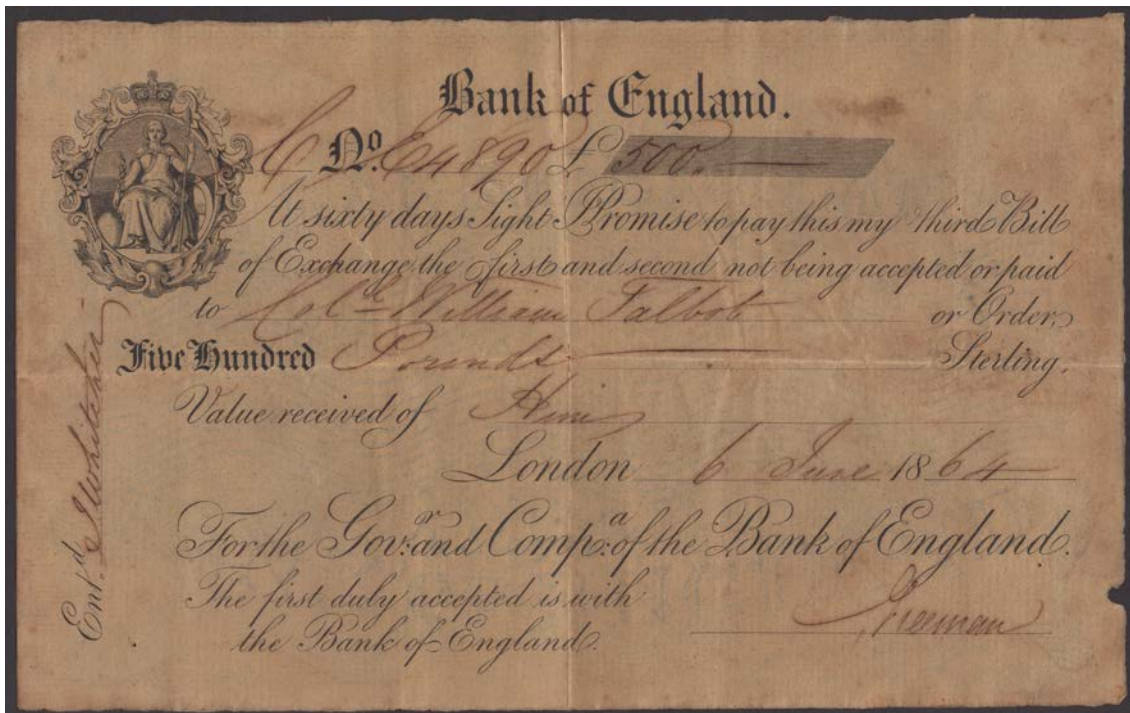 Bank of England.
C No. E4890 £ 500.
At sixty days Sight I Promise to pay this my third Bill
of Exchange the first and second not being accepted or paid
to Col. William Talbot or Order,
Five Hundred Pounds Sterling.
Value received of Him
London 6 June 1864
For the Govr. and Compa. of the Bank of England.
The first duly accepted is with
the Bank of England.
Freeman
Entd. J Whitaker